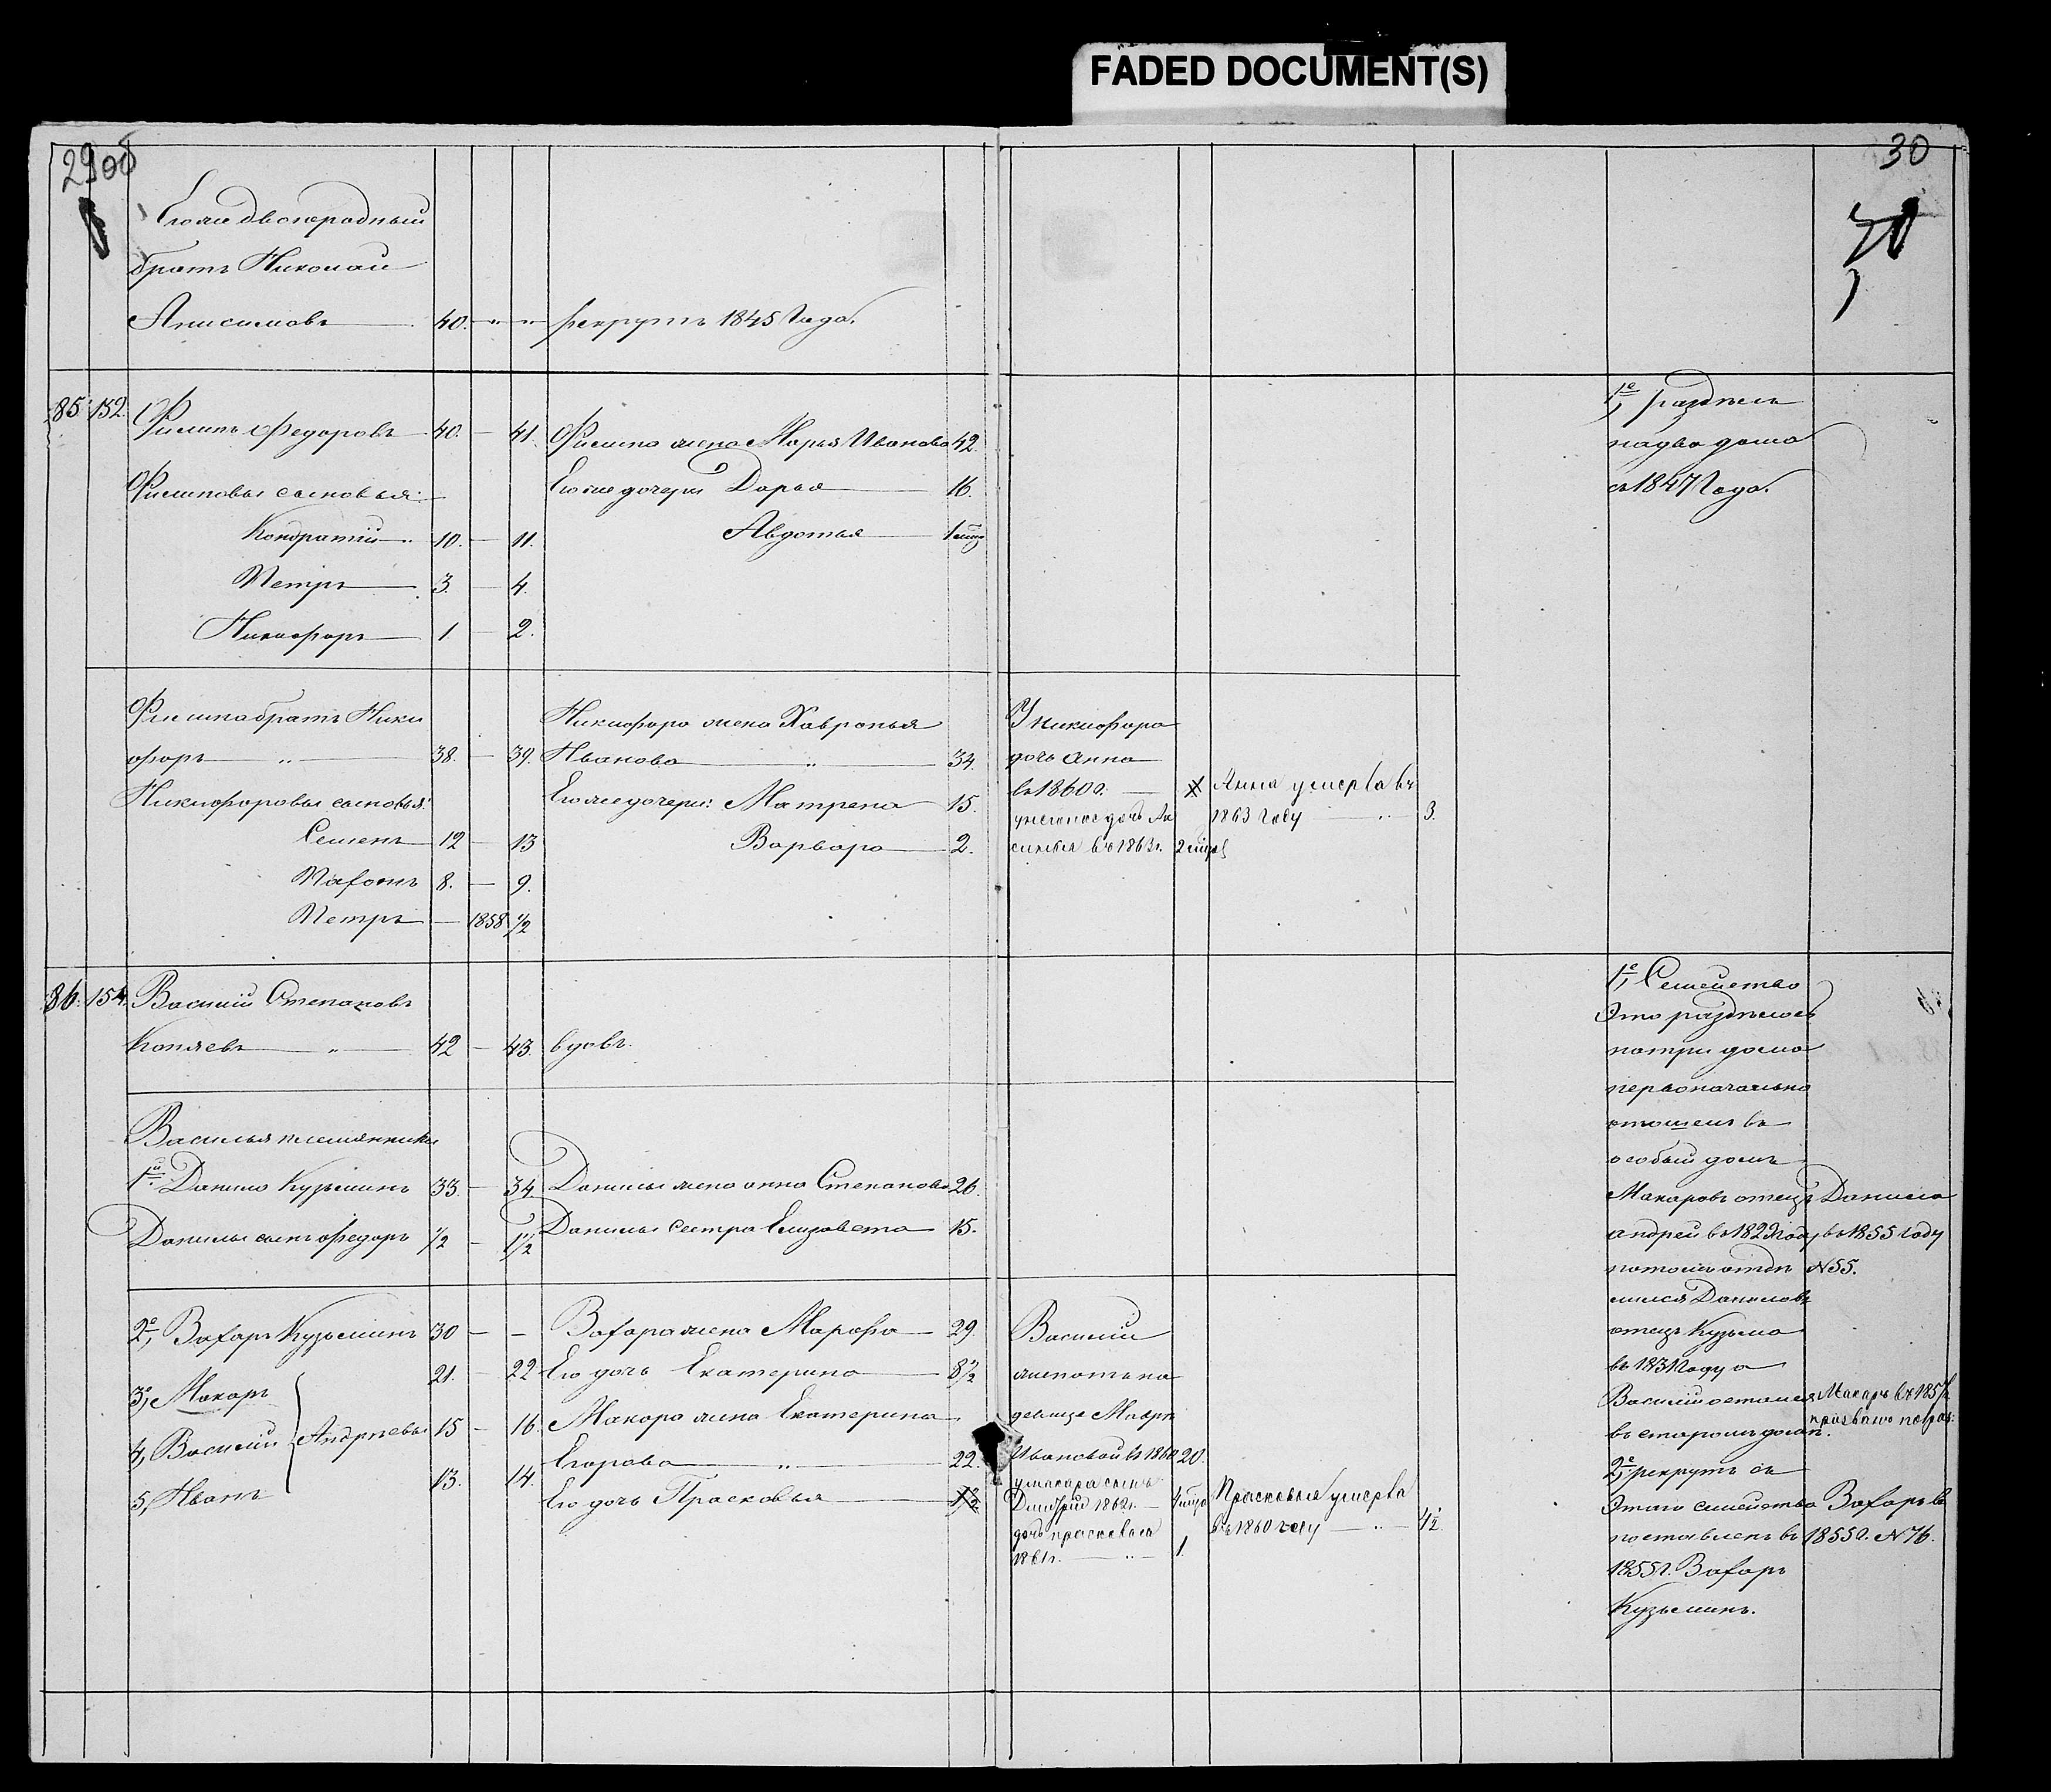 FADED DOCUMENT(S)
29 об
30
Его же двоюродный
братъ Николай
Анисимовъ 40. — „ — „ — рекрутъ 1845 Года.
85. 152. Филипъ Федоровъ 40. — 41. Филипа жена Марья Иванова 42.
Филиповы сыновья: Его же дочери Дарья 16.
Кондратій 10. — 11. Авдотья 1
Петръ 3. — 4.
Никифоръ 1 — 2.
1е, раздѣлъ
на два дома
съ 1847 Года.
Филипа братъ Ники
форъ „ 38. — 39.
Никифоровы сыновья:
Семенъ 12 — 13
Пафомъ 8. — 9.
Петръ — 1858 1/2
Никифора жена Хавронья
Иванова „ 34.
Его же дочери: Матрена 15.
Варвара 2.
У Никифора
дочь Анна
въ 1860 г. — X
у него же дочь Ак
синья въ 1863 г. 2
Анна умерла въ
1863 Году „ 3.
86. 154. Василій Степановъ
Копяевъ „ 42 — 43. вдовъ.
Василья племянники
1й Данило Кузьминъ 33. — 34. Данилы жена Анна Степанова 26.
Данилы сынъ Федоръ 1/2 — 1 1/2 Данилы сестра Елизавета 15.
2е, Захаръ Кузьминъ 30 — — Захара жена Марфа 29.
21. — 22 Его дочь Екатерина 8 1/2
3, Макаръ
4, Василій Андреевы 15 — 16. Макара жена Екатерина
Егорова „ 22.
5, Иванъ 13. 14.
Его дочь Прасковья
Василій
женотъ на
девице Мавре
Ивановой въ 1860 20.
у макара сынъ
Дмитрій 1862 г. — 4
дочь прасковья
1861 г. „ 1.
Прасковья умерла
въ 1860 году „ 4 1/2.
1е, Семейство
Это разделось
на три дома
первоначально
отошелъ въ
особый домъ
Макаровъ отецъ
андрей въ 1822 году
потомъ отде
лился Даниловъ
отецъ Кузьма
въ 1831 Году а
Василій остался
въ старомъ доме.
2е, рекрутъ съ
Этаго семейства
поставленъ въ
1855 г. Захаръ
Кузьминъ.
Данила
въ 1855 Году
№ 55.
Макаръ въ 1857 г.
Захаръ въ
1855 г. № 76.